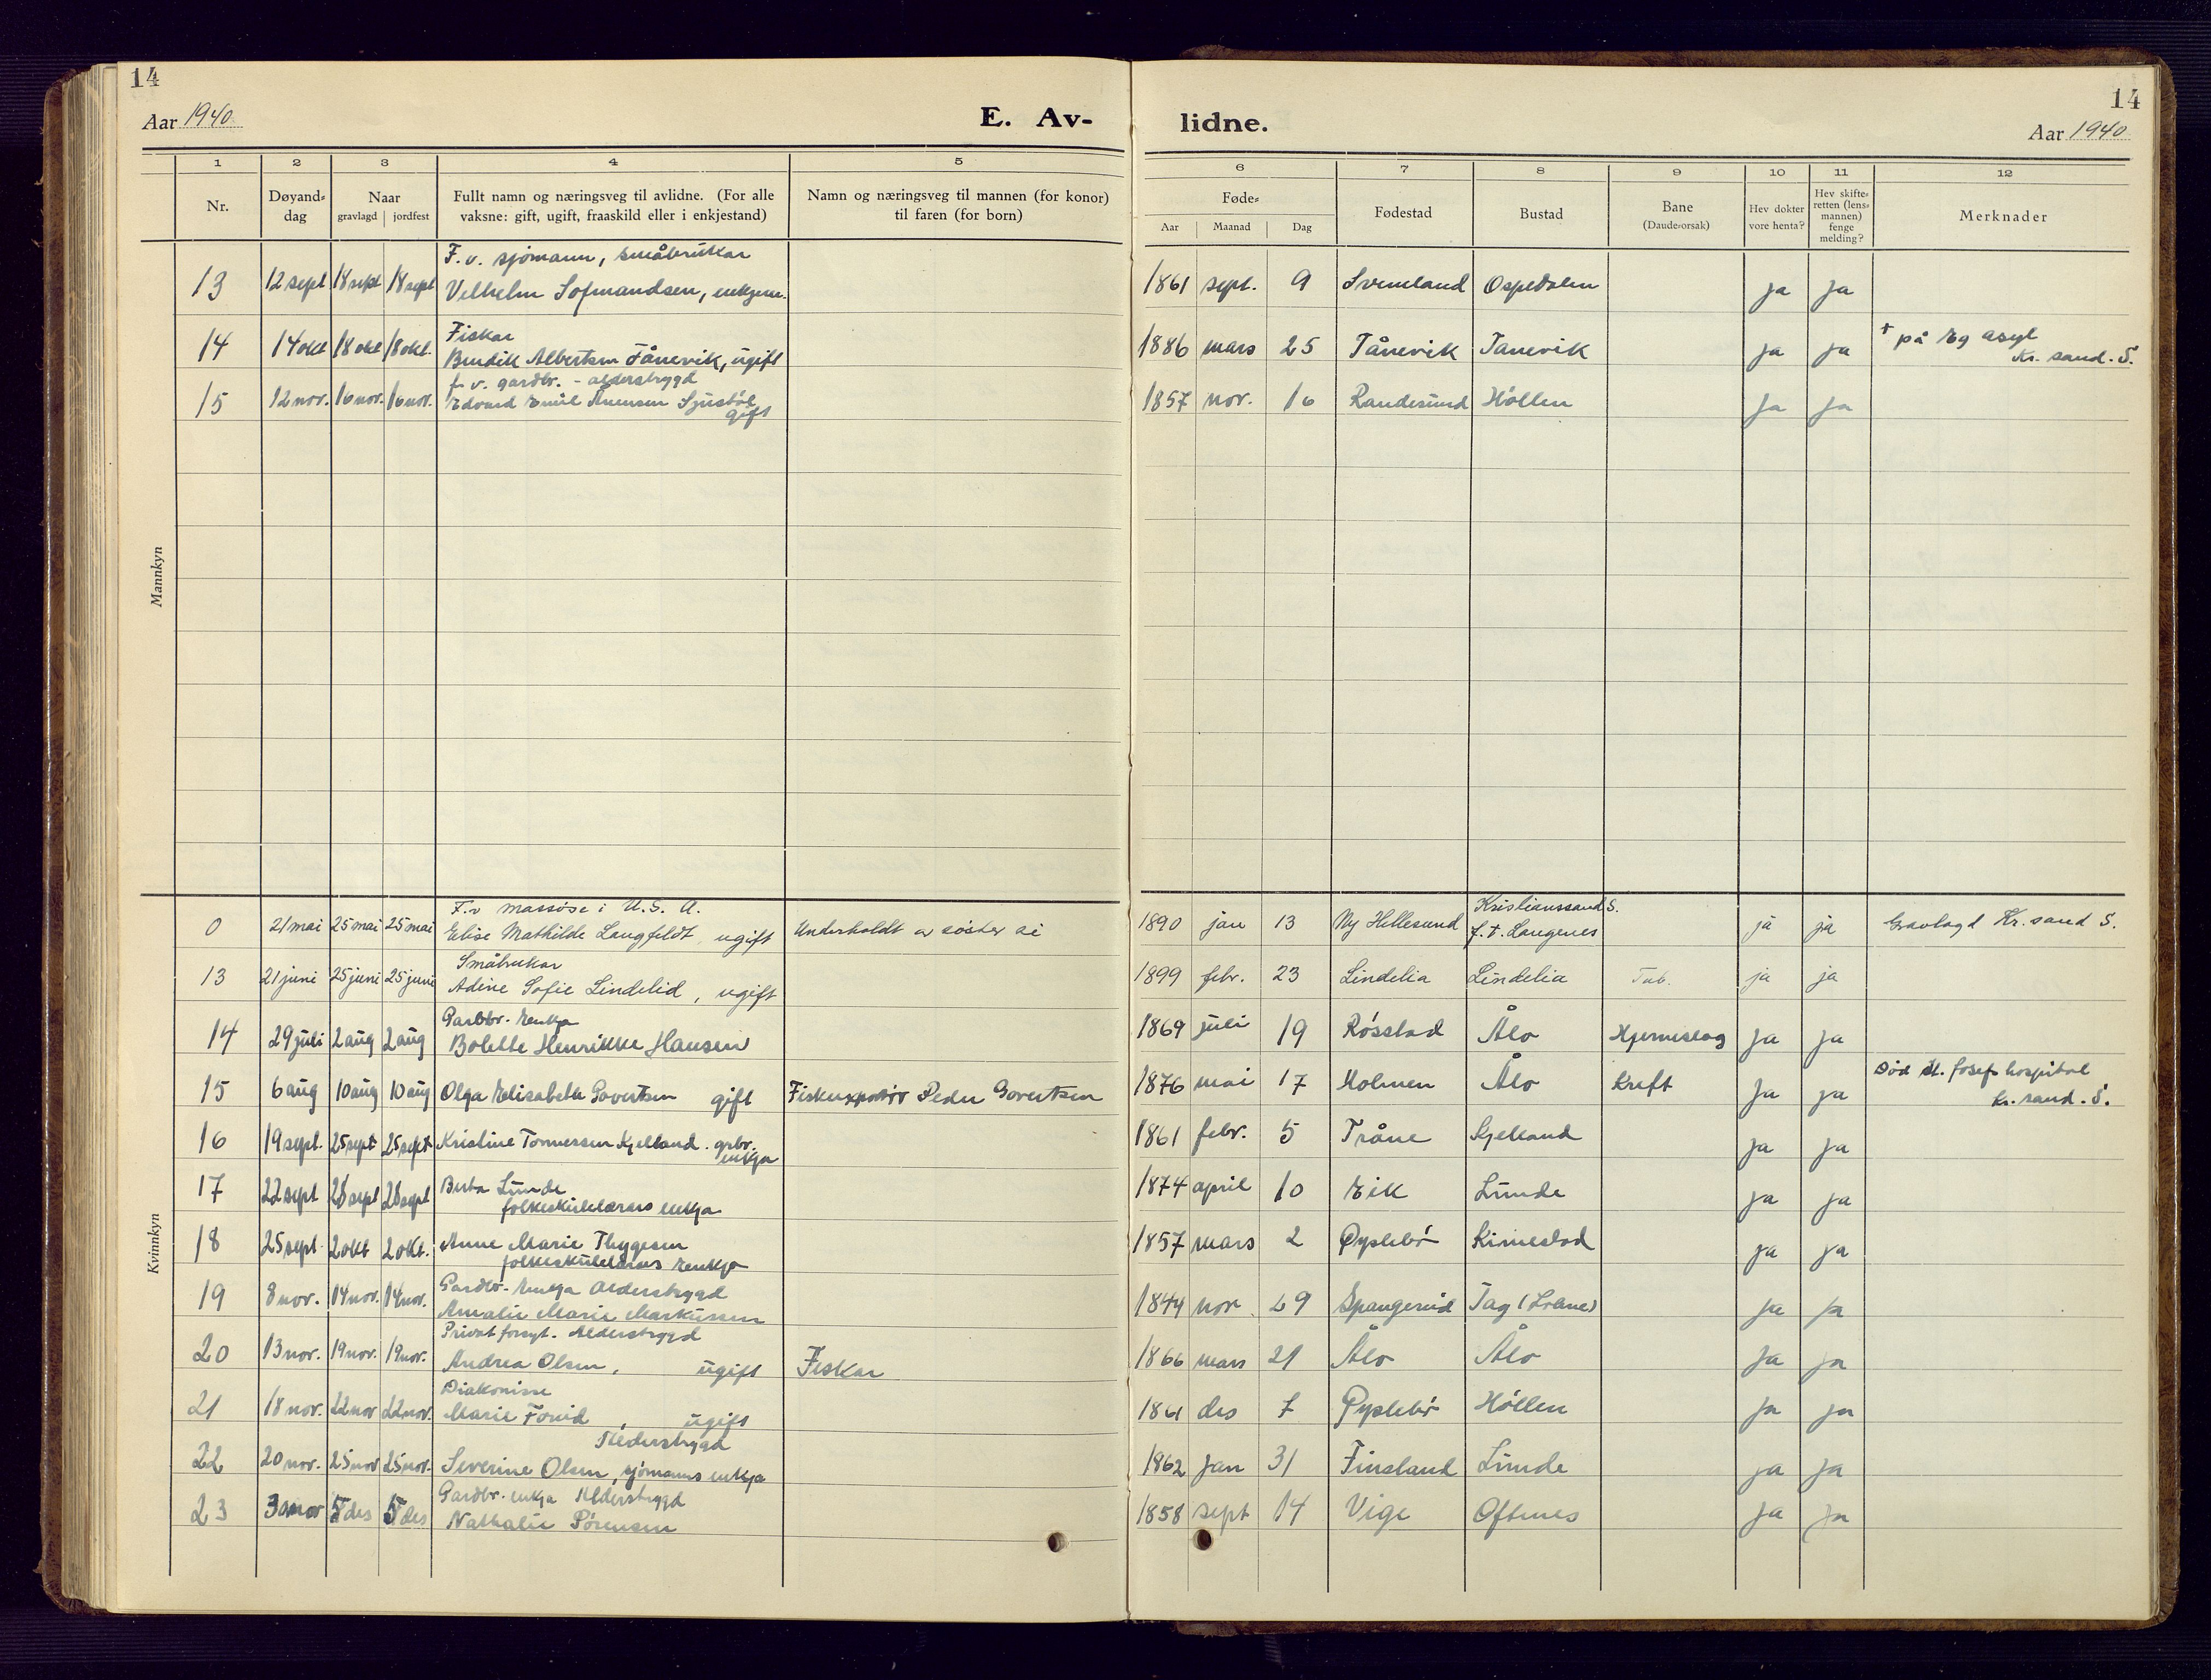 14
14
Aar 1940
E. Av-
lidne.
Aar 1940
1 2 3 4 5 6 7 8 9 10 11 12
Nr.
Døyand-
dag
Naar
gravlagd jordfest
Fullt namn og næringsveg til avlidne. (For alle
vaksne: gift, ugift, fraaskild eller i enkjestand)
Namn og næringsveg til mannen (for konor)
til faren (for born)
Føde-
Aar Maanad Dag
Fødestad
Bustad
Bane
(Daude-orsak)
Hev dokter
vore henta?
Hev skifte-
retten (lens-
mannen)
fenge
melding?
Merknader
Mannkyn
F. v. sjømann, småbrukar
13 12 sept 18 sept 18 sept Vilhelm Sofmandsen, enkjem. 1861 sept. 9 Sveneland Ospedalen ja ja
Fiskar
14 14 okt 18 okt 18 okt. Bendik Albertsen Tånevik, ugift 1886 mars 25 Tånevik Tanevik ja ja † på Eg asyl
Kr. sand. S.
f. v. gardbr. - alderstrygd
15 12 nov. 16 nov. 16 nov. Edvard Emil Ånensen Sjustøl 1857 nov. 16 Randesund Höllen ja ja
gift
Kvinnkyn
F.v massøse i U.S.A. Kristianssand S.
0 21 mai 25 mai 25 mai Elise Mathilde Langfeldt, ugift Underholdt av søster si 1890 jan 13 Ny Hellesund f. t. Langenes ja ja Gravlagd Kr. sand S.
Småbrukar
13 21 juni 25 juni 25 juni Adine Sofie Lindelid, ugift 1899 febr. 23 Lindelia Lindelia Tub. ja ja
Gardbr. enkja
14 29 juli 2 aug 2 aug Bolette Henrikke Hansen 1869 juli 19 Røsstad Ålo Hjerneslag ja ja
15 6 aug 10 aug 10 aug Olga Elisabeth Govertsen gift Fiskexportør Peder Govertsen 1876 mai 17 Holmen Ålo Kreft ja ja Død St. Josefs hospital
Kr. sand. S.
16 19 sept. 25 sept 25 sept Kristine Tønnersen Kjelland. grbr. 1861 febr. 5 Tråne Kjelland ja ja
enkja
17 22 sept 28 sept 28 sept Berta Lunde 1874 april 10 Eik Lunde ja ja
folkeskulelærars enkja
18 25 sept. 2 okt 2 okt. Anne Marie Thygesen 1857 mars 2 Øyslebö Rimestad ja ja
folkeskulelærars enkja
Gardbr. enkja Alderstrygd
19 8 nov. 14 nov. 14 nov. Amalie Marie Markussen 1844 nov. 29 Spangereid Tag ja ja
Privat forsyt. Alderstrygd
20 13 nov. 19 nov. 19 nov. Andrea Olsen, ugift Fiskar 1866 mars 21 Ålo Ålo ja ja
Diakonisse
21 18 nov. 22 nov 22 nov. Marie , ugift 1861 des 7 Øyslebö Höllen ja ja
Alderstrygd
22 20 nov. 25 nov 25 nov. Severine Olsen, sjømanns enkja 1862 jan 31 Finsland Lunde ja ja
Gardbr. enkja Alderstrygd
23 30 nov 5 des 5 des Nathalie Sørensen 1858 sept 14 Vige Oftenes ja ja